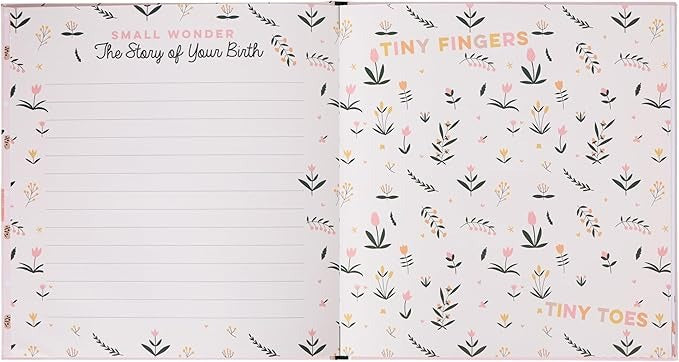 SMALL WONDER
The Story of Your Birth
TINY FINGERS
TINY TOES